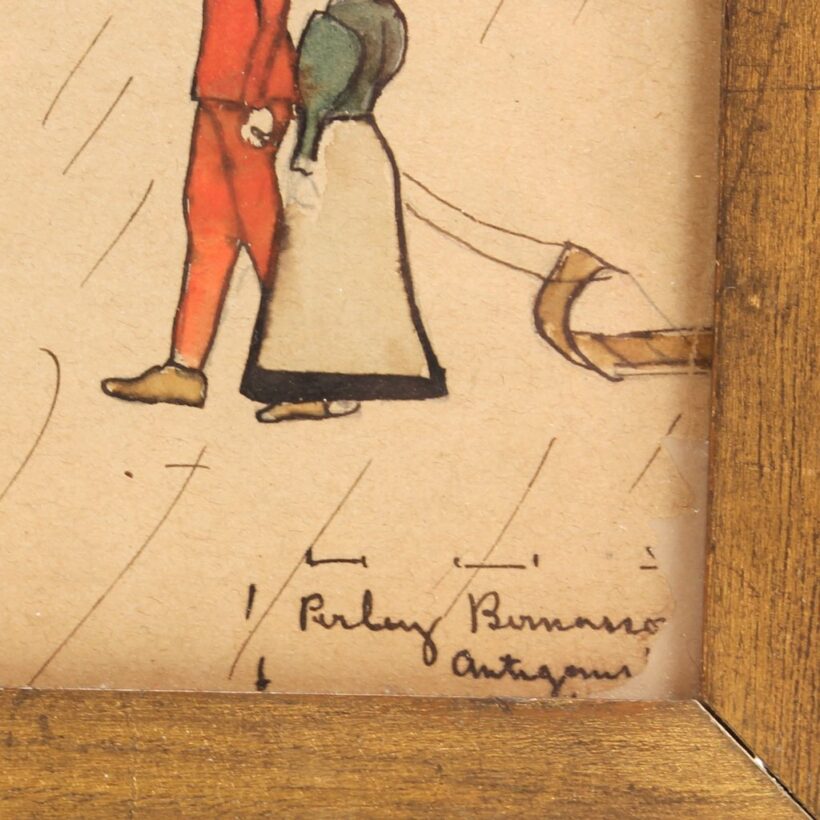 Perley Bernasso
Antigonis